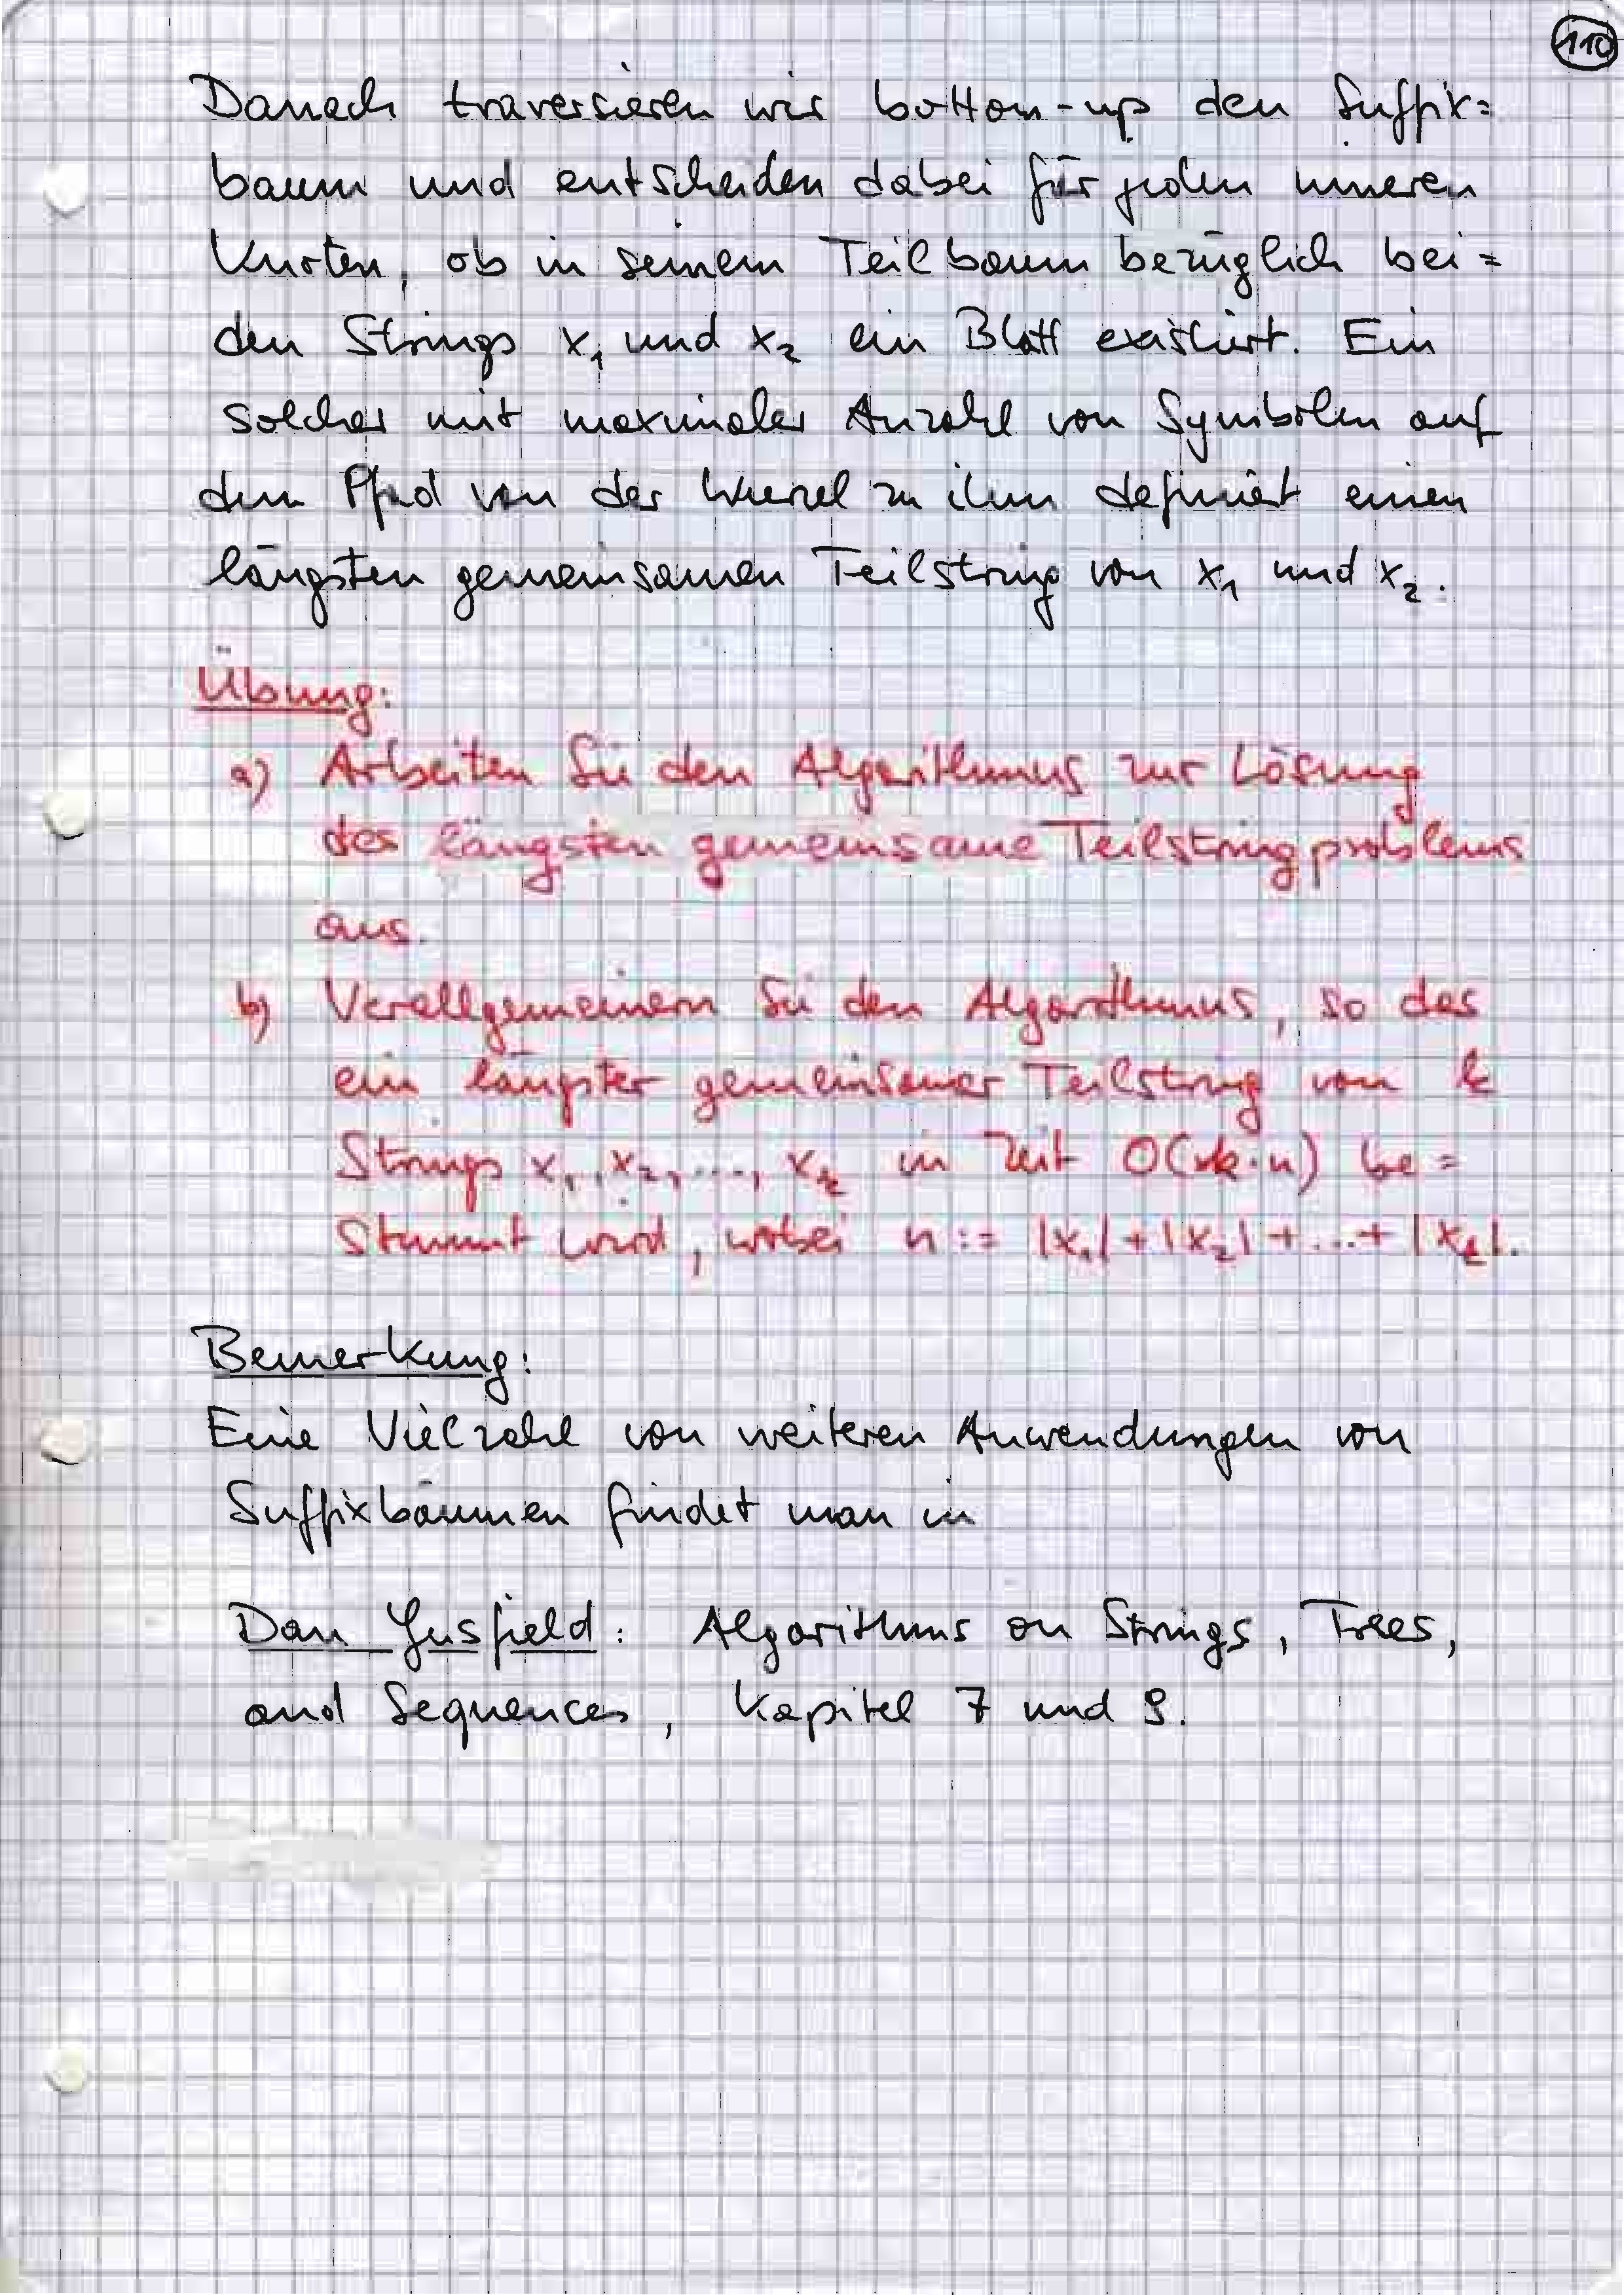 110
Danach traversieren wir bottom-up den Suffix=
baum und entscheiden dabei für jeden inneren
Knoten, ob in seinem Teilbaum bezüglich bei=
den Strings x₁ und x₂ ein Blatt existiert. Ein
solcher mit maximaler Anzahl von Symbolen auf
dem Pfad von der Wurzel zu ihm definiert einen
längsten gemeinsamen Teilstring von x₁ und x₂.
Übung:
a) Arbeiten Sie den Algorithmus zur Lösung
des längsten gemeinsame Teilstringproblems
aus.
b) Verallgemeinern Sie den Algorithmus, so das
ein längster gemeinsamer Teilstring von k
Strings x₁, x₂, ..., xₖ in Zeit O(k·n) be=
stimmt wird, wobei n := |x₁| + |x₂| + ... + |xₖ|.
Bemerkung:
Eine Vielzahl von weiteren Anwendungen von
Suffixbäumen findet man in
Dan Gusfield: Algorithms on Strings, Trees,
and Sequences, Kapitel 7 und 9.